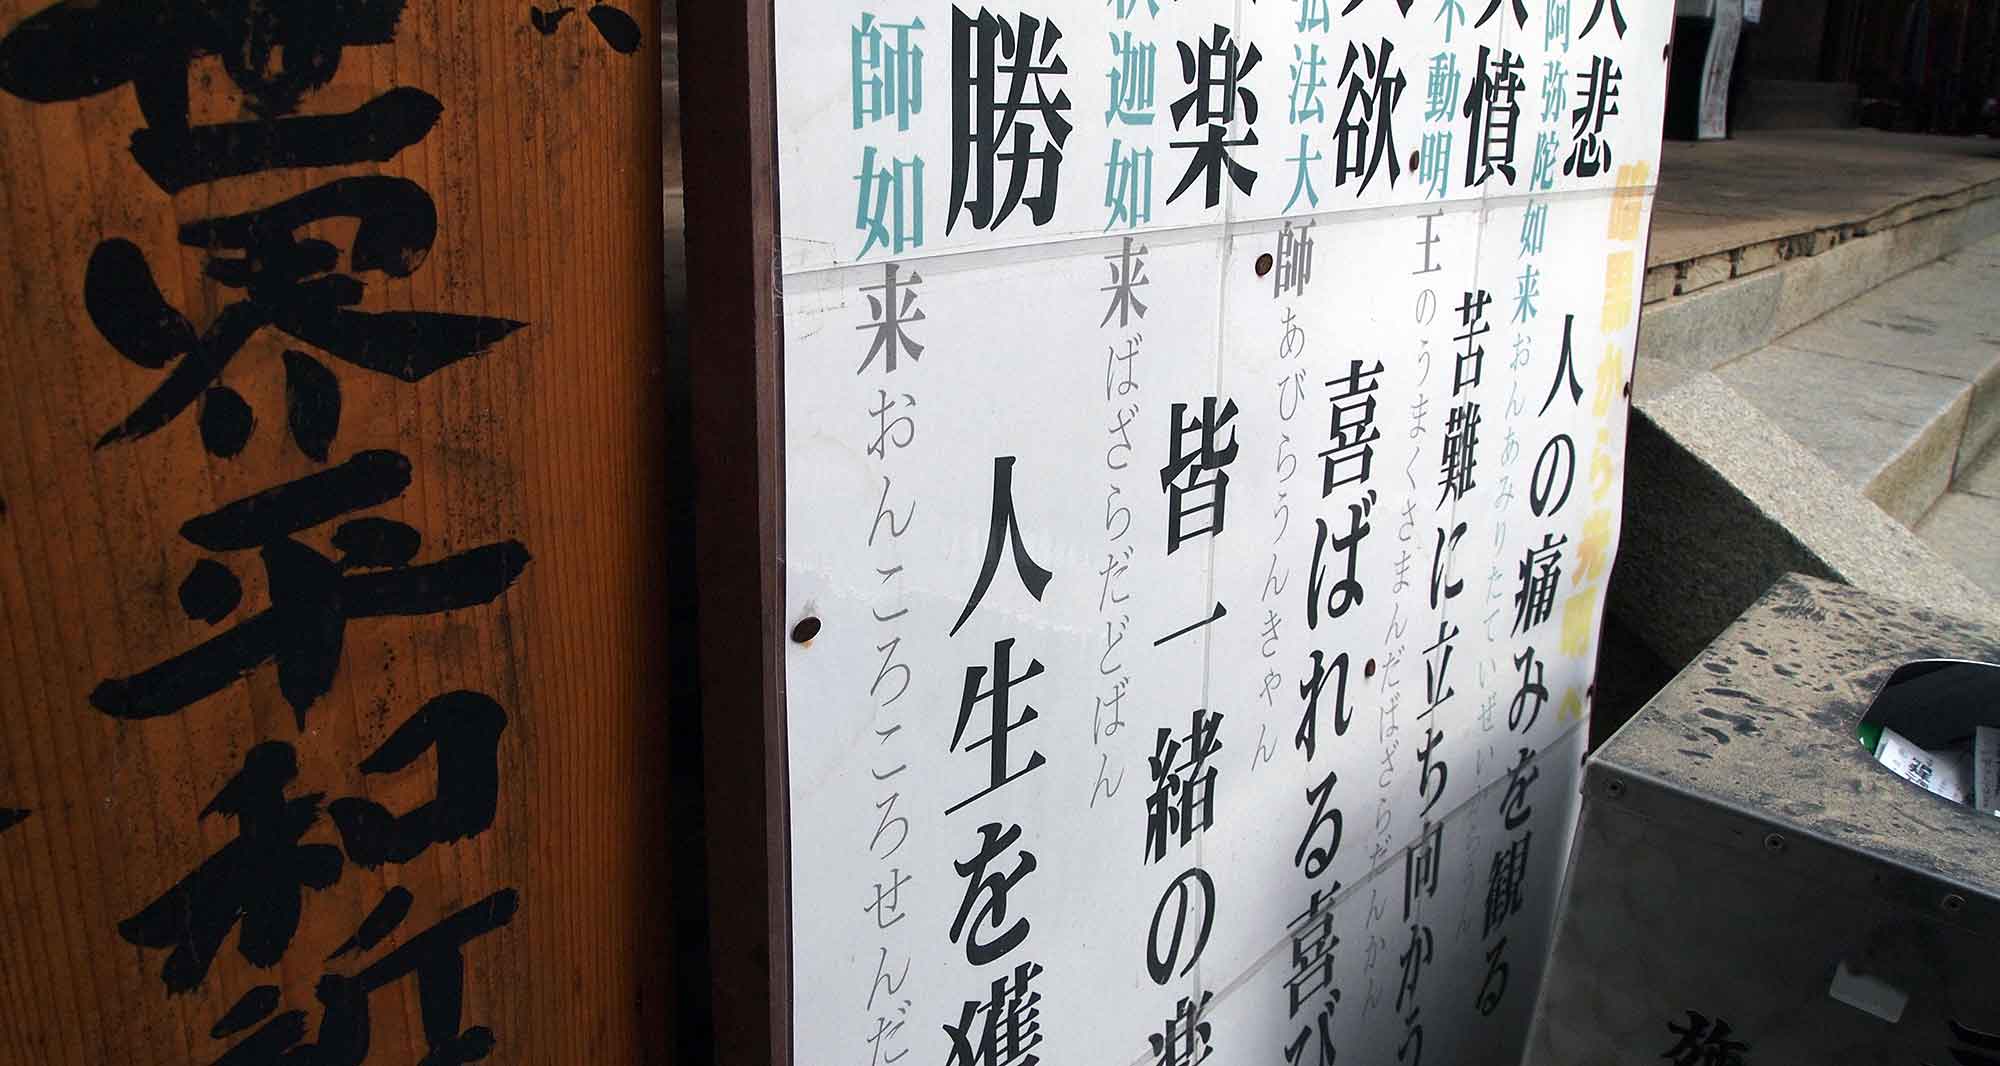 暗黒から光明へ
大悲
人の痛みを観る
阿弥陀如来おんあみりたていぜい からうん
大憤
苦難に立ち向かう
不動明王のうまくさまんだばざらだんかん
大欲
喜ばれる喜び
弘法大師あびらうんきゃん
大楽
皆一緒の楽
釈迦如来ばざらだどばん
勝
人生を獲
師如来おんころころせんだ
世界平和祈